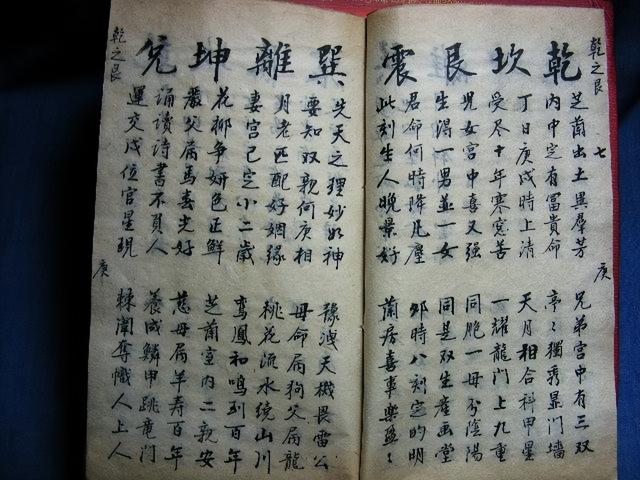 乾之艮 七 庚
乾 坎 艮 震
芝蘭出土異羣芳 兄弟宮中有三双
内中定有冨貴命 亭〻獨秀显门墙
丁日庚戌時上清 天月相合科甲星
受尽十年寒窓苦 一耀龍门上九重
児女宮中喜又强 同胞一母分陰陽
生渴一男並一女 同是双生産画堂
君命何時降凡塵 卯時八刻定的明
此刻生人晚景好 蘭房喜事樂盈〻
巽 離 坤 兌
先天之理妙如神 豫洩天機畏雷公
要知双親何庚相 母命属狗父属龍
月老匹配好姻缘 桃花流水绕山川
妻宮已定小二歲 鸾鳳和鳴到百年
花柳争妍色正鮮 芝蘭室内二親安
嚴父属馬春光好 慈母属羊寿百年
诵讀詩書不負人 養成鱗甲跳竜门
運交戌位官星現 棘闈奪幟人上人
乾之艮 庚